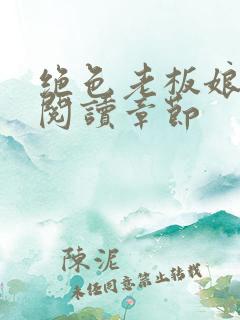 绝色老板娘
閱讀章節
陳泥
未經同意禁止轉載